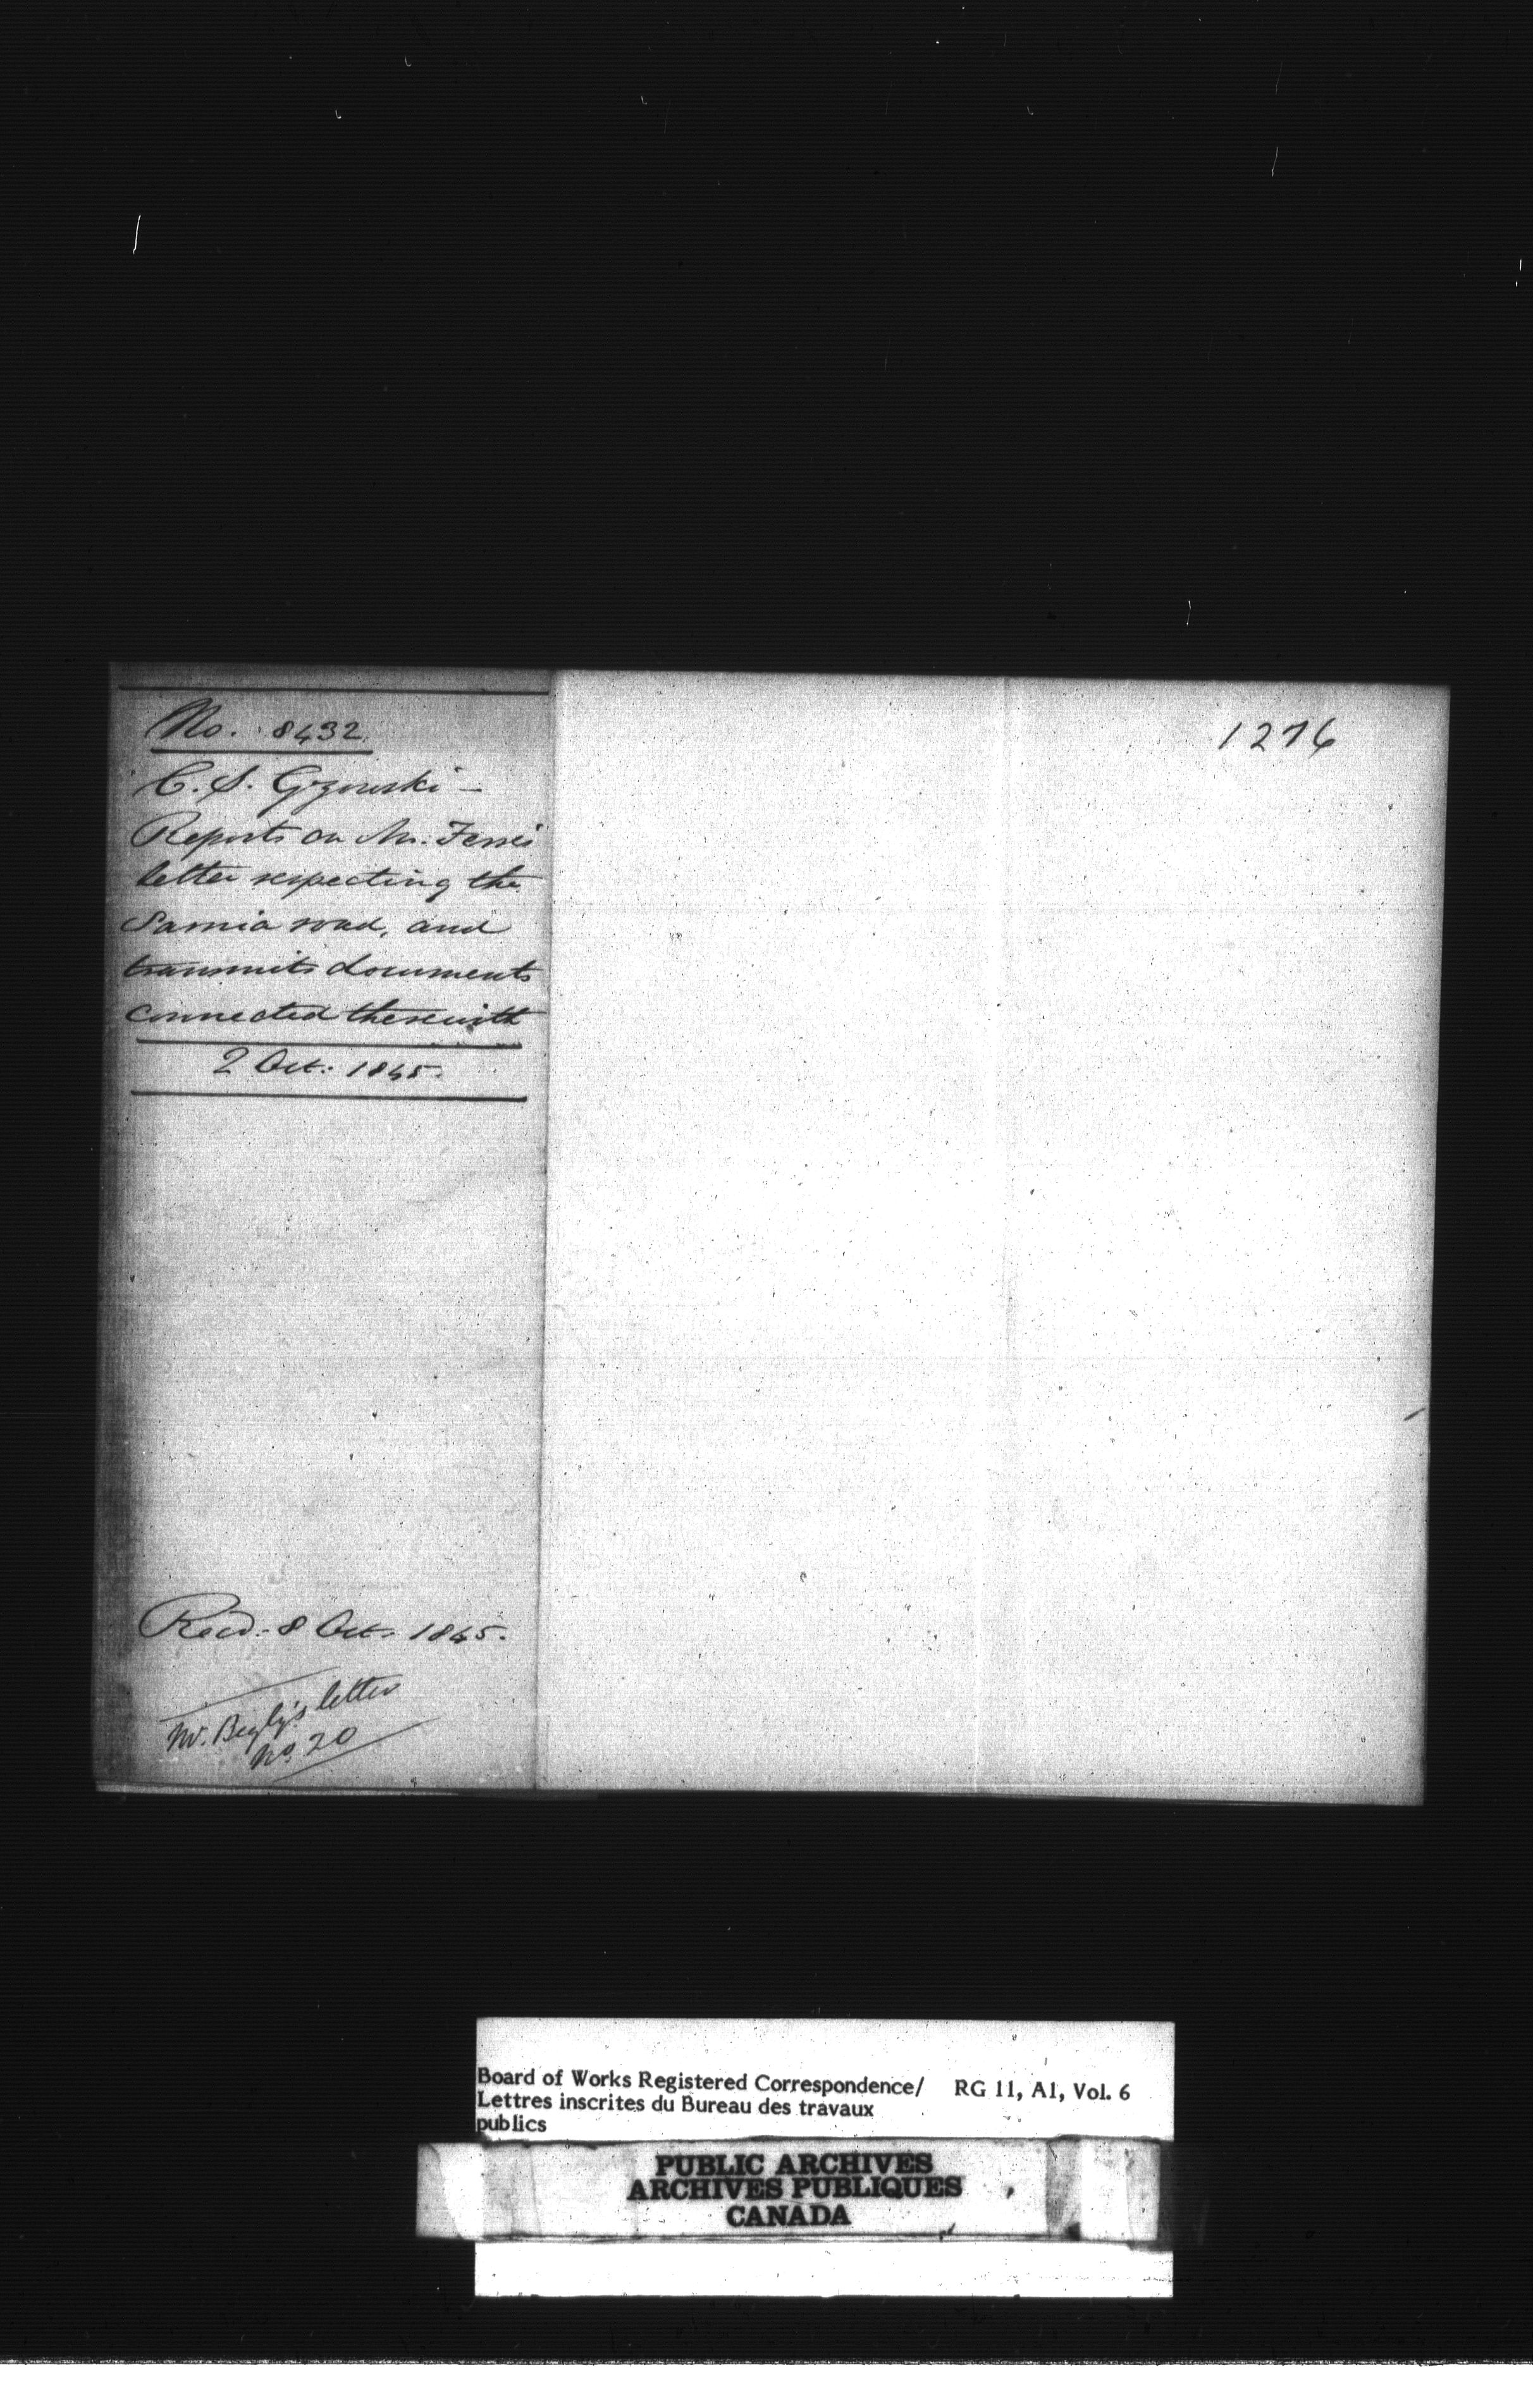 No. 8432.
C. S. Gzowski –
Reports on Mr.
letter respecting the
Sarnia road, and
transmits documents
connected therewith
2 Oct: 1845.
Recd. 8 Oct. 1845.
Mr. Begly's letter
No. 20
1276
Board of Works Registered Correspondence/ RG 11, A1, Vol. 6
Lettres inscrites du Bureau des travaux
publics
PUBLIC ARCHIVES
ARCHIVES PUBLIQUES
CANADA